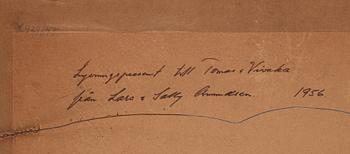 Lysningspresent till Tomas & Viveka
från Lars & Sally 1956